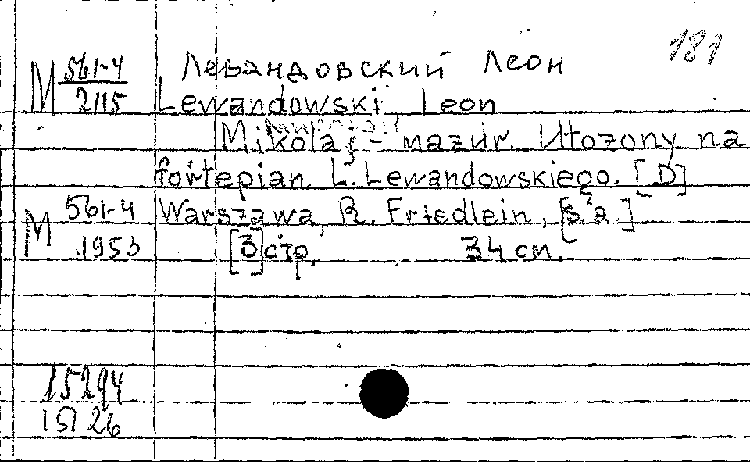 181
М 561-4 Левандовский Леон
2115 Lewandowski Leon
Mikołaj - mazur. Ułożony na
fortepian L. Lewandowskiego. [D]
М 561-4 Warszawa, R. Friedlein, [s.a.]
1953 [3] стр. 34 см.
15294
15126